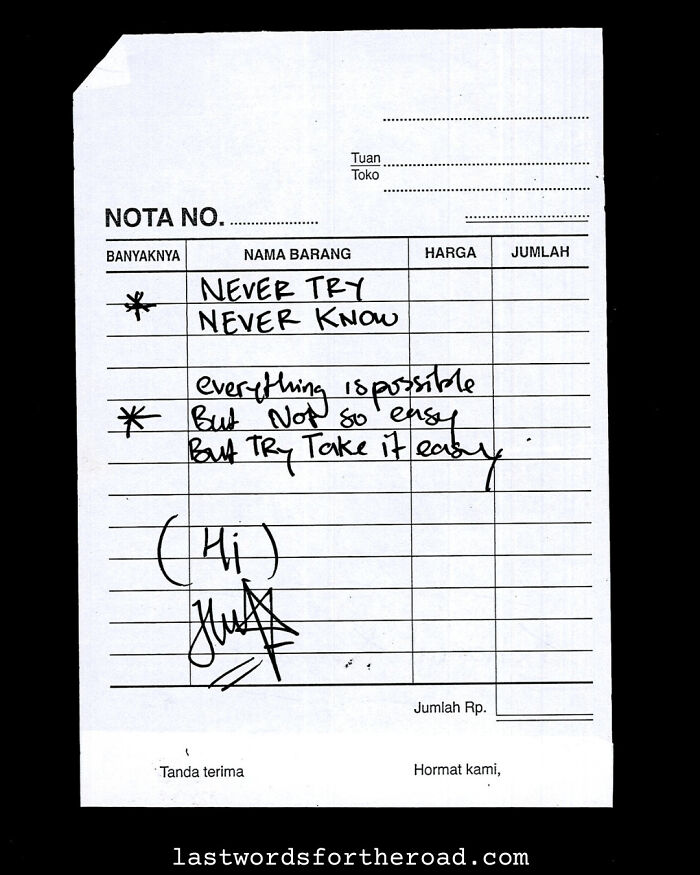 Tuan
Toko
NOTA NO.
BANYAKNYA NAMA BARANG HARGA JUMLAH
* NEVER TRY
NEVER KNOW
everything is possible
* But Not so easy
But TRy Take it easy
( Hi )
Jumlah Rp.
Tanda terima Hormat kami,
lastwordsfortheroad.com